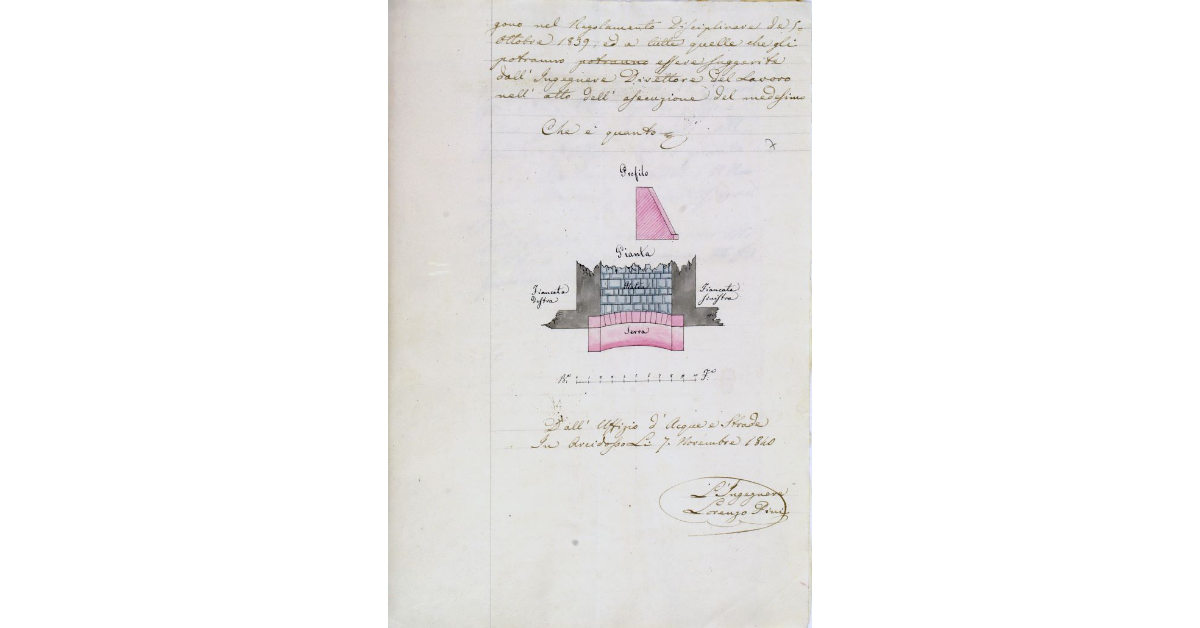 gono nel Regolamento Disciplinare de 5.
Ottobre 1839, ed a tutte quelle che gli
potranno potranno essere suggerite
dall' Ingegnere Direttore del Lavoro
nell' atto dell' esecuzione del medesimo
Che è quanto
Profilo
Pianta
Platea
Fiancata
Destra
Fiancata
sinistra
Serra
Dall' Uffizio d' Acque e Strade
In Arcidosso Li 7. Novembre 1840
L'Ingegnere
Lorenzo Pini